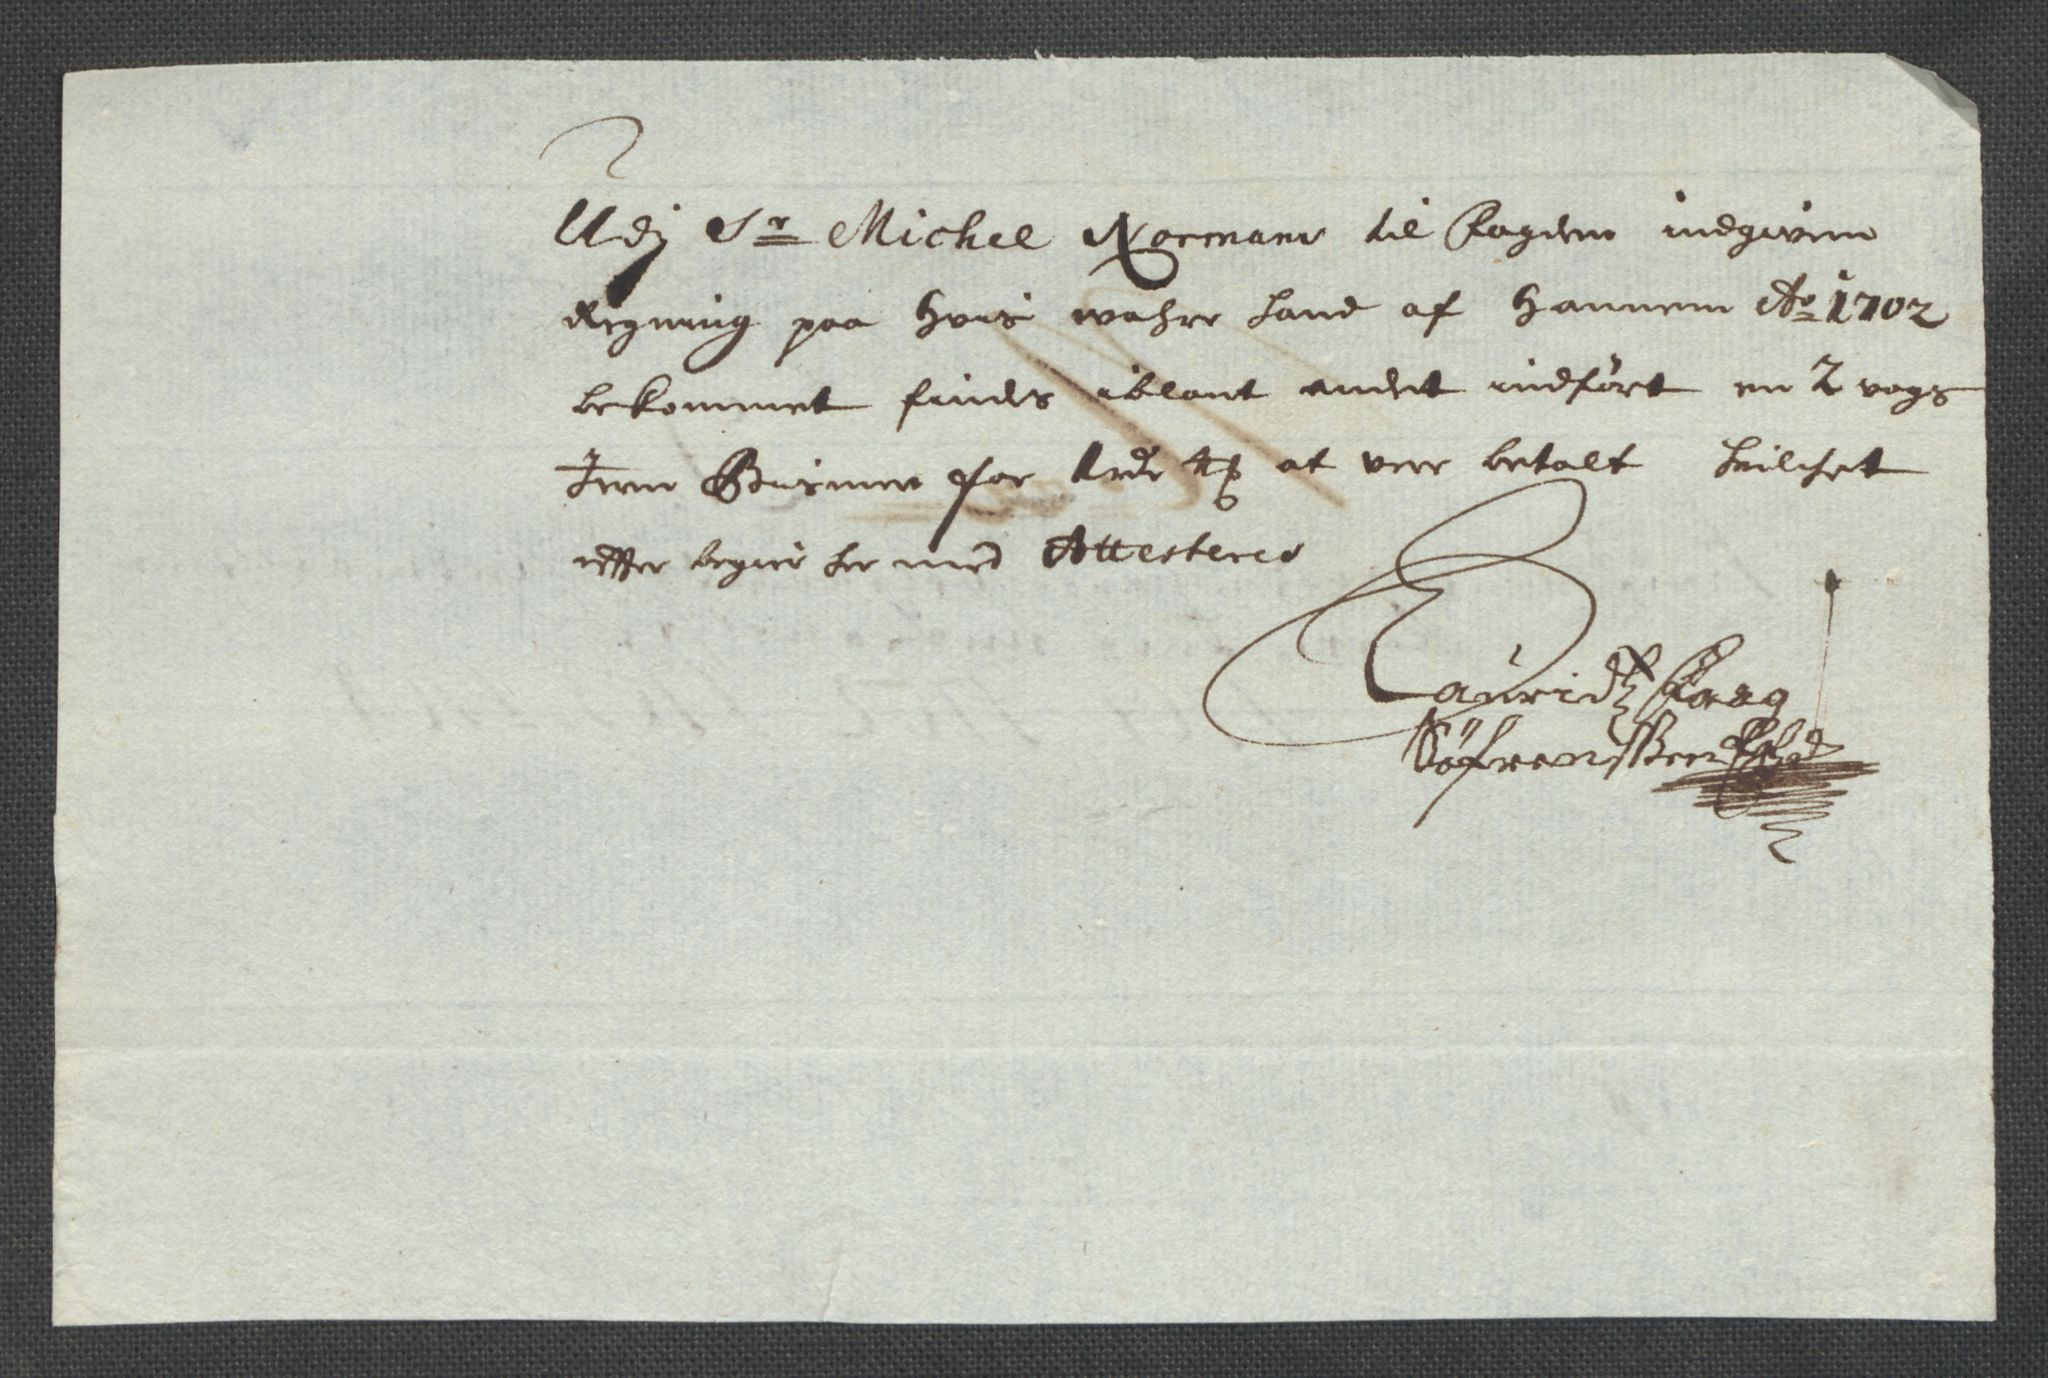 Udj Sr Michel Normann til Fogden indgivene
Regning paa hvis wahre hand af hannem Ao 1702
bekommet findes iblant andet indført en 2 vogs
Jern Bismer for at vere betalt huilchet
effter begier her med Attesteres
Lauridtz
Søfrenssen